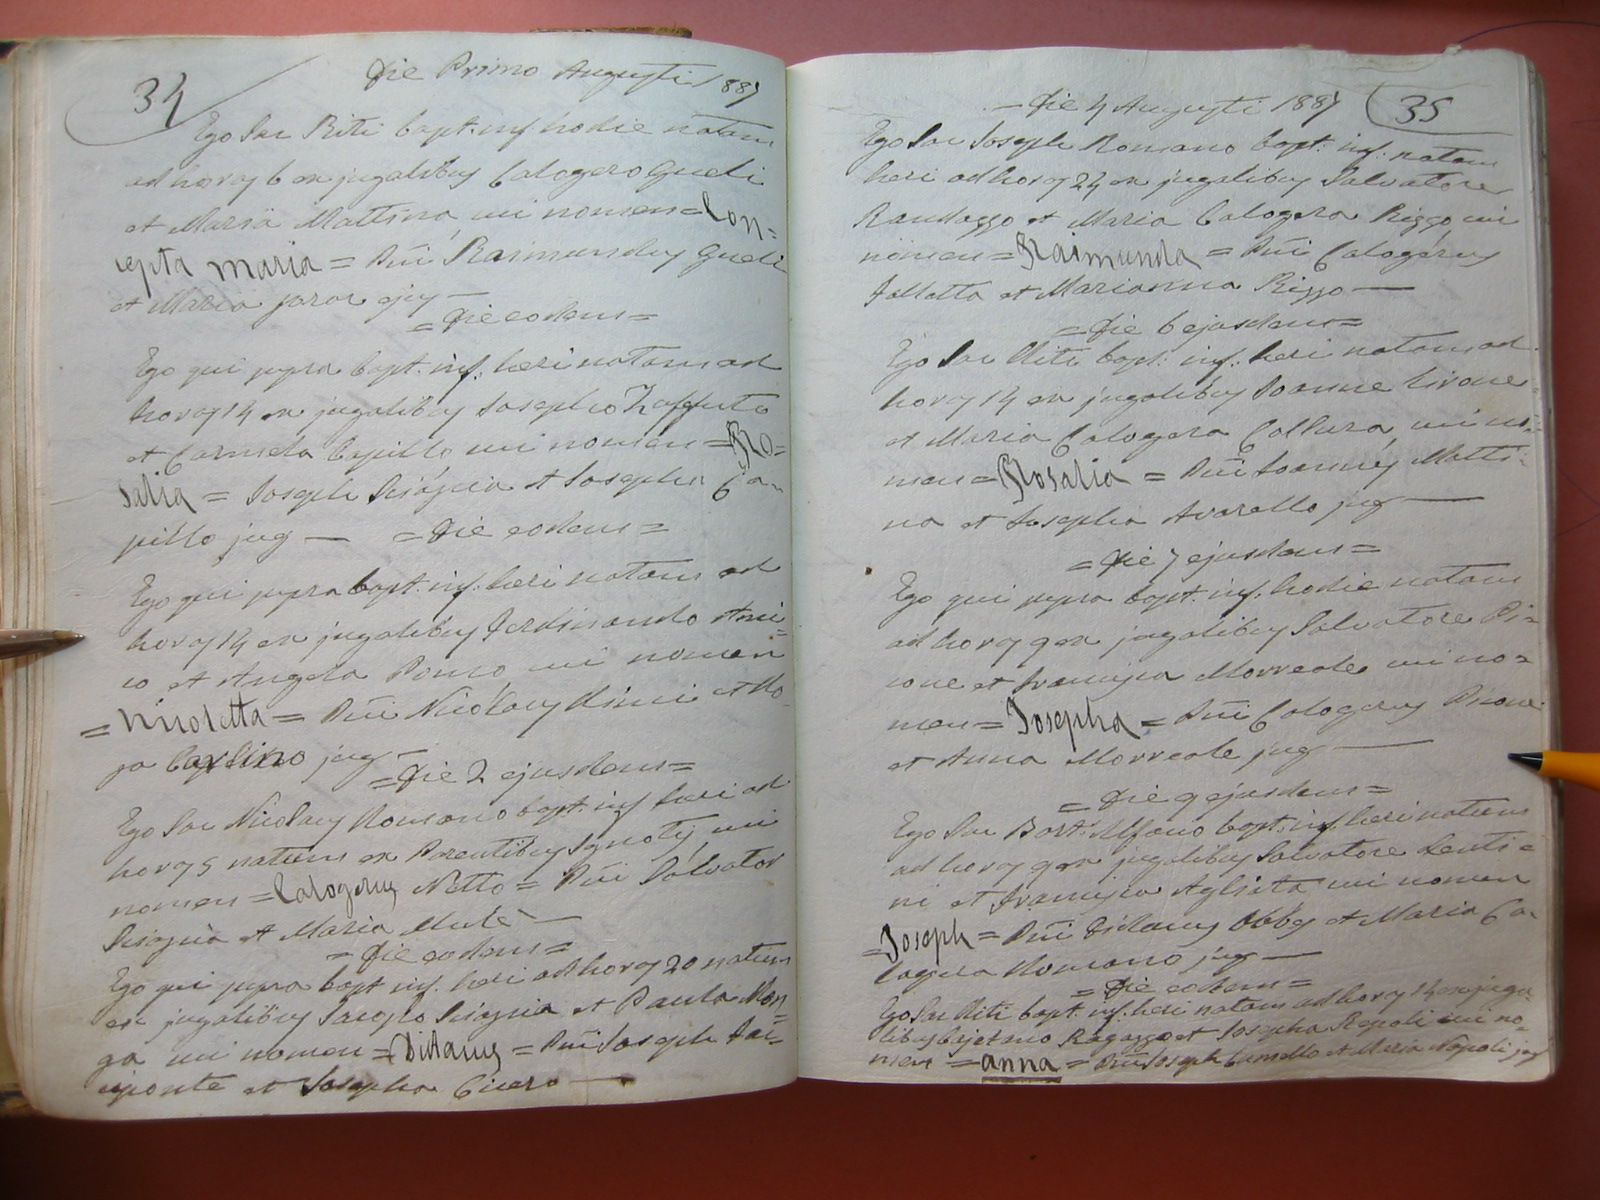 34
Die Primo Augusti 1887
Ego Sac Riti bapt. inf. hodie natam
ad horas 6 ex jugalibus Calogero Gueli
et Maria Mattina, cui nomen = Con=
cepta Maria = Pni Raimundus Gueli
et Maria soror ejus —
= Die eodem =
Ego qui supra bapt. inf. heri natam ad
horas 14 ex jugalibus Josepho Zaffuto
et Carmela Capillo cui nomen = Ro=
salia = Joseph Scozia et Josepha Ca=
pillo jug — = Die eodem =
Ego qui supra bapt. inf. heri natam ad
horas 14 ex jugalibus Ferdinando Ami=
co et Angela Ponso cui nomen
= Nicoletta = Pni Nicolaus et Ro
sa jug —
= Die 2 ejusdem =
Ego Sac Nicolaus Romano bapt. inf heri ad
horas 5 natum ex Parentibus Ignotis, cui
nomen = Calogerus Netto = Pni Salvator
et Maria Mulè —
= Die eodem =
Ego qui supra bapt inf. heri ad horas 20 natum
ex jugalibus et Paula Mon=
ga cui nomen = Vitus = Pni Joseph Fal=
ciponte et Josepha Cicero —
35
— Die 4 Augusti 1887
Ego Sac Joseph Romano bapt: inf: natam
heri ad horas 24 ex jugalibus Salvatore
Randazzo et Maria Calogera Rizzo cui
nomen = Raimunda = Pni Calogerus
Falletta et Marianna Rizzo —
= Die 6 ejusdem =
Ego Sac Riti bapt. inf. heri natam ad
horas 14 ex jugalibus Joanne Cirone
et Maria Calogera Collura cui no=
men = Rosalia = Pni Joannes Matti=
na et Josepha Avarello jug —
= Die 7 ejusdem =
Ego qui supra bapt. inf. hodie natam
ad horas 9 ex jugalibus Salvatore Pi=
cone et Francisca Morreale cui no=
men = Josepha = Pni Calogerus Picone
et Anna Morreale jug —
= Die 9 ejusdem =
Ego Sac Bart. Alfano bapt: inf. heri natum
ad horas 9 ex jugalibus Salvatore Lenti=
ni et Francisca Aglieta cui nomen
= Joseph = Pni et Maria Ca=
logera Romano jug —
= Die eodem =
Ego Sac Riti bapt. inf. heri natam ad horas 14 ex juga=
libus Cajetano Ragazzo et Josepha Repoli cui no=
men = anna = Pni Joseph et Maria Napoli jug